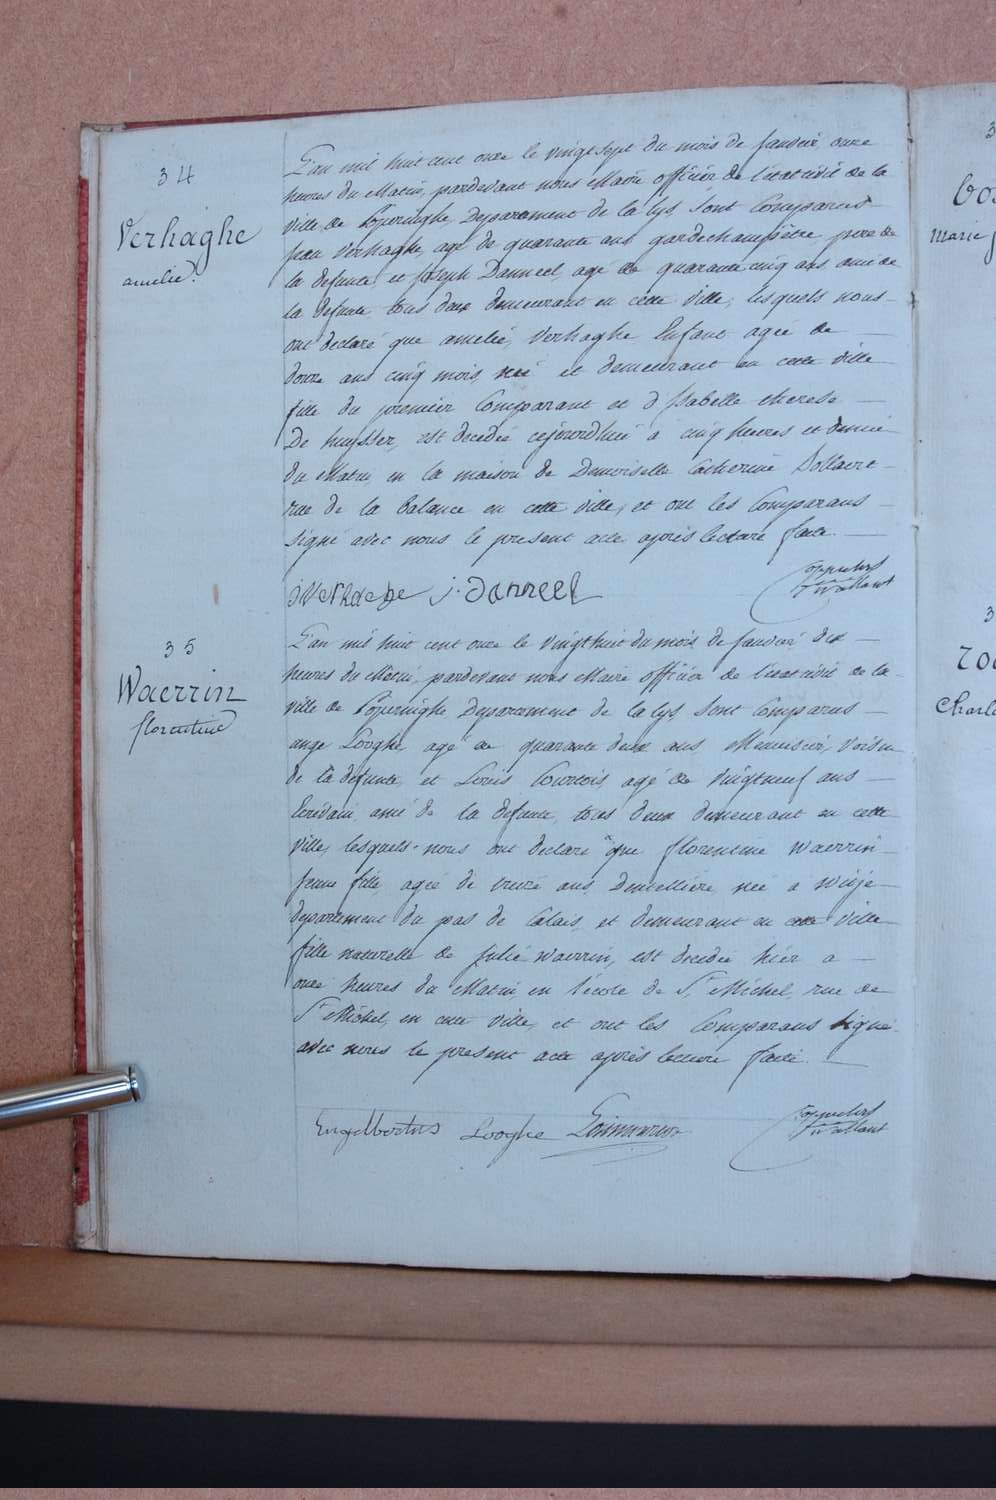 34
Verhaghe
amelie.
L'an mil huit cent onze le vingt sept du mois de Janvier, onze
heures du Matin, pardevant nous Maire officier de l'état civil de la
ville de Poperinghe, Departement de la lys, sont Comparus
Jean Verhaghe, agé de quarante ans gardechampêtre, pere de
la defunte, et joseph Danneel, agé de quarante cinq ans ami de
la defunte tous deux demeurant en cette ville, lesquels nous
ont declaré que amelie, Verhaghe Enfant agée de
douze ans cinq mois, née et demeurant en cette ville
fille du premier Comparant et d'Isabelle therese
De huysser, est decedée cejourdhui a cinq heures et demie
du Matin, en la maison de Demoiselle Catherine Dollaert
rue de la balance en cette ville, et ont les Comparans
signé avec nous le present acte après lecture faite.
j verhaeghe j. Danneel
35
Waerrin
florentine
L'an mil huit cent onze le vingthuit du mois de Janvier dix
heures du Matin, pardevant nous Maire officier de l'état civil de la
ville de Poperinghe Departement de la lys sont Comparus
ange Looghe agé de quarante deux ans Menuisier, voisin
de la defunte, et Louis Courtois, agé de vingtneuf ans
Ecrivain, ami de la defunte, tous deux demeurant en cette
ville, lesquels nous ont declaré que florentine waerrin
Jeune fille agée de treize ans, Dentellière née a
departement du pas de Calais, et demeurant en cette ville
fille naturelle de Julie waerrin, est decedée hier a
onze heures du Matin, en l'école de St. Michel, rue de
St. Michel, en cette ville, et ont les Comparans signé
avec nous le present acte après lecture faite.
Engelbertus Looghe